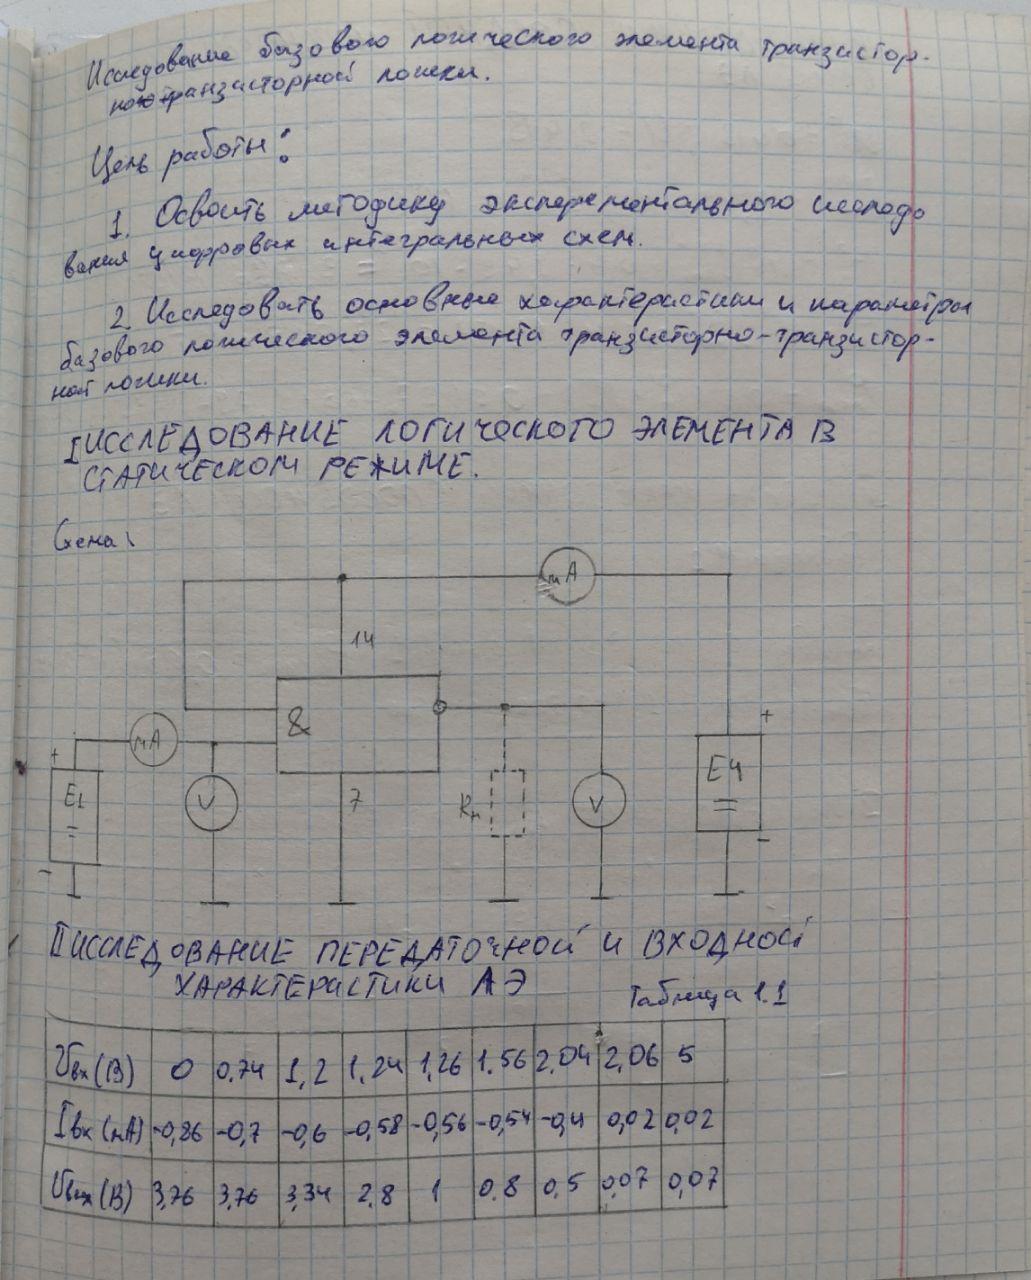 Исследование базового логического элемента транзистор-
но-транзисторной логики.
Цель работы:
1. Освоить методику эксперементального исследо
вания цифровых интегральных схем.
2. Исследовать основные характеристики и параметры
базового логического элемента транзисторно-транзистор-
ной логики.
I ИССЛЕДОВАНИЕ ЛОГИЧЕСКОГО ЭЛЕМЕНТА В
СТАТИЧЕСКОМ РЕЖИМЕ.
Схема:
mA
14
&
+ mA
+
E1
=
V
7
Rн
V
E4
=
-
-
II ИССЛЕДОВАНИЕ ПЕРЕДАТОЧНОЙ И ВХОДНОЙ
ХАРАКТЕРИСТИКИ ЛЭ
Таблица 1.1
Uвх (В) 0 0,74 1,2 1,24 1,26 1.56 2,04 2,06 5
Iвх (мА) -0,86 -0,7 -0,6 -0,58 -0,56 -0,54 -0,4 0,02 0,02
Uвых (В) 3,76 3,76 3,34 2,8 1 0,8 0,5 0,07 0,07